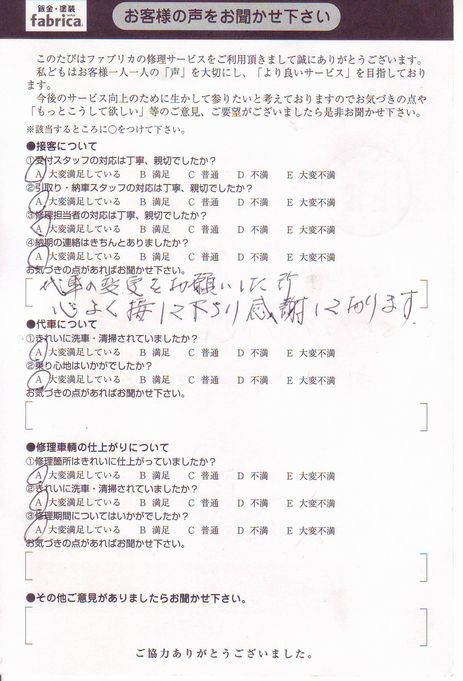 鈑金・塗装
fabrica.
お客様の声をお聞かせ下さい
このたびはファブリカの修理サービスをご利用頂きまして誠にありがとうございます。
私どもはお客様一人一人の「声」を大切にし、「より良いサービス」を目指しており
ます。
今後のサービス向上のために生かして参りたいと考えておりますのでお気づきの点や
「もっとこうして欲しい」等のご意見、ご要望がございましたら是非お聞かせ下さい。
※該当するところに○をつけて下さい。
●接客について
①受付スタッフの対応は丁寧、親切でしたか？
A 大変満足している B 満足 C 普通 D 不満 E 大変不満
②引取り・納車スタッフの対応は丁寧、親切でしたか？
A 大変満足している B 満足 C 普通 D 不満 E 大変不満
③修理担当者の対応は丁寧、親切でしたか？
A 大変満足している B 満足 C 普通 D 不満 E 大変不満
④納期の連絡はきちんとありましたか？
A 大変満足している B 満足 C 普通 D 不満 E 大変不満
お気づきの点があればお聞かせ下さい。
代車の変更をお願いした所
心よく接して下さり感謝しております
●代車について
①きれいに洗車・清掃されていましたか？
A 大変満足している B 満足 C 普通 D 不満 E 大変不満
②乗り心地はいかがでしたか？
A 大変満足している B 満足 C 普通 D 不満 E 大変不満
お気づきの点があればお聞かせ下さい。
●修理車輌の仕上がりについて
①修理箇所はきれいに仕上がっていましたか？
A 大変満足している B 満足 C 普通 D 不満 E 大変不満
②きれいに洗車・清掃されていましたか？
A 大変満足している B 満足 C 普通 D 不満 E 大変不満
③修理期間についてはいかがでしたか？
A 大変満足している B 満足 C 普通 D 不満 E 大変不満
お気づきの点があればお聞かせ下さい。
●その他ご意見がありましたらお聞かせ下さい。
ご協力ありがとうございました。